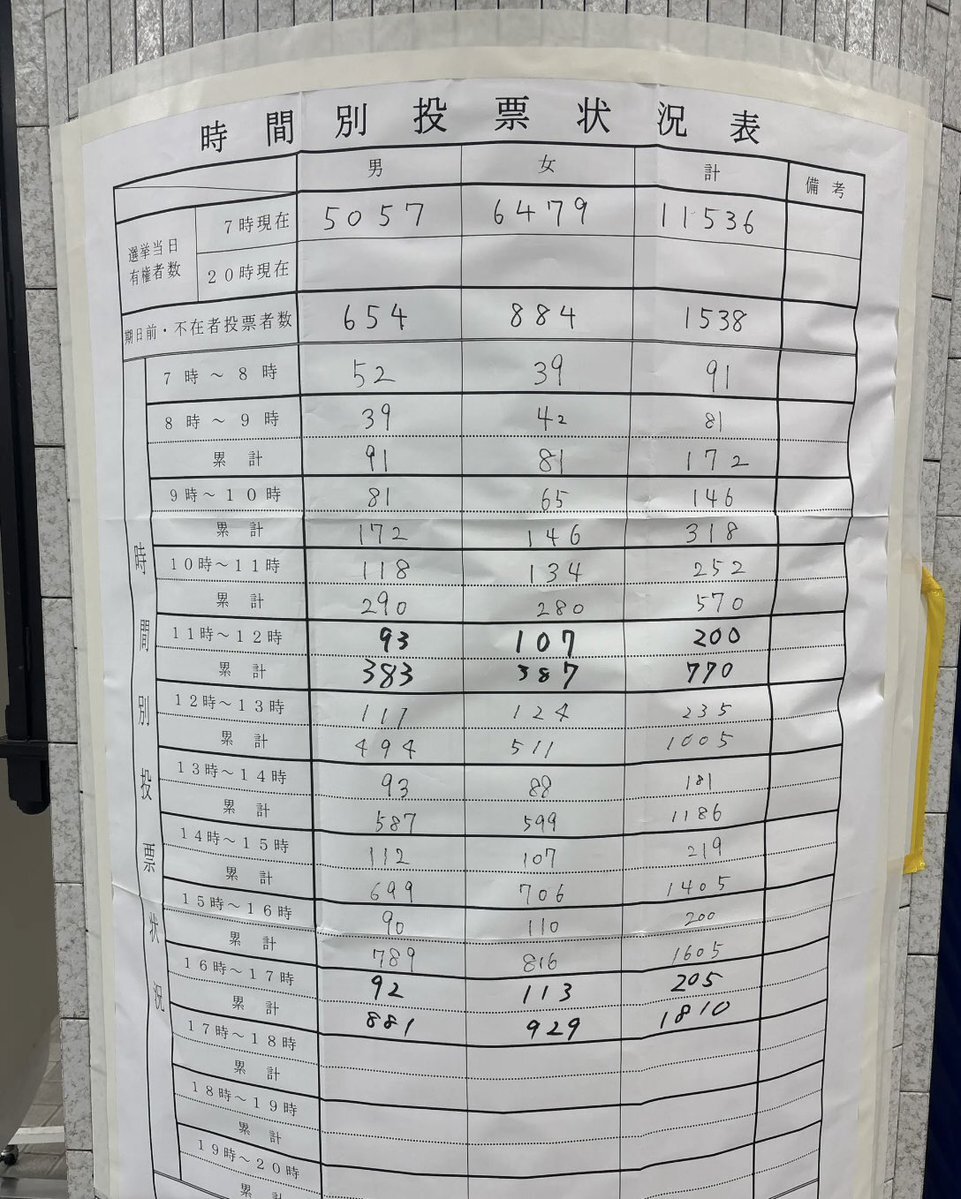 時間別投票状況表
男 女 計 備考
選挙当日有権者数 7時現在 5057 6479 11536
20時現在
期日前・不在者投票者数 654 884 1538
時間別投票状況
7時～8時 52 39 91
8時～9時 39 42 81
累計 91 81 172
9時～10時 81 65 146
累計 172 146 318
10時～11時 118 134 252
累計 290 280 570
11時～12時 93 107 200
累計 383 387 770
12時～13時 111 124 235
累計 494 511 1005
13時～14時 93 88 181
累計 587 599 1186
14時～15時 112 107 219
累計 699 706 1405
15時～16時 90 110 200
累計 789 816 1605
16時～17時 92 113 205
累計 881 929 1810
17時～18時
累計
18時～19時
累計
19時～20時
累計